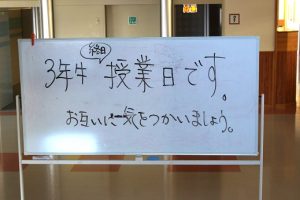 終日
3年生 授業日です。
お互いに気をつかいましょう。